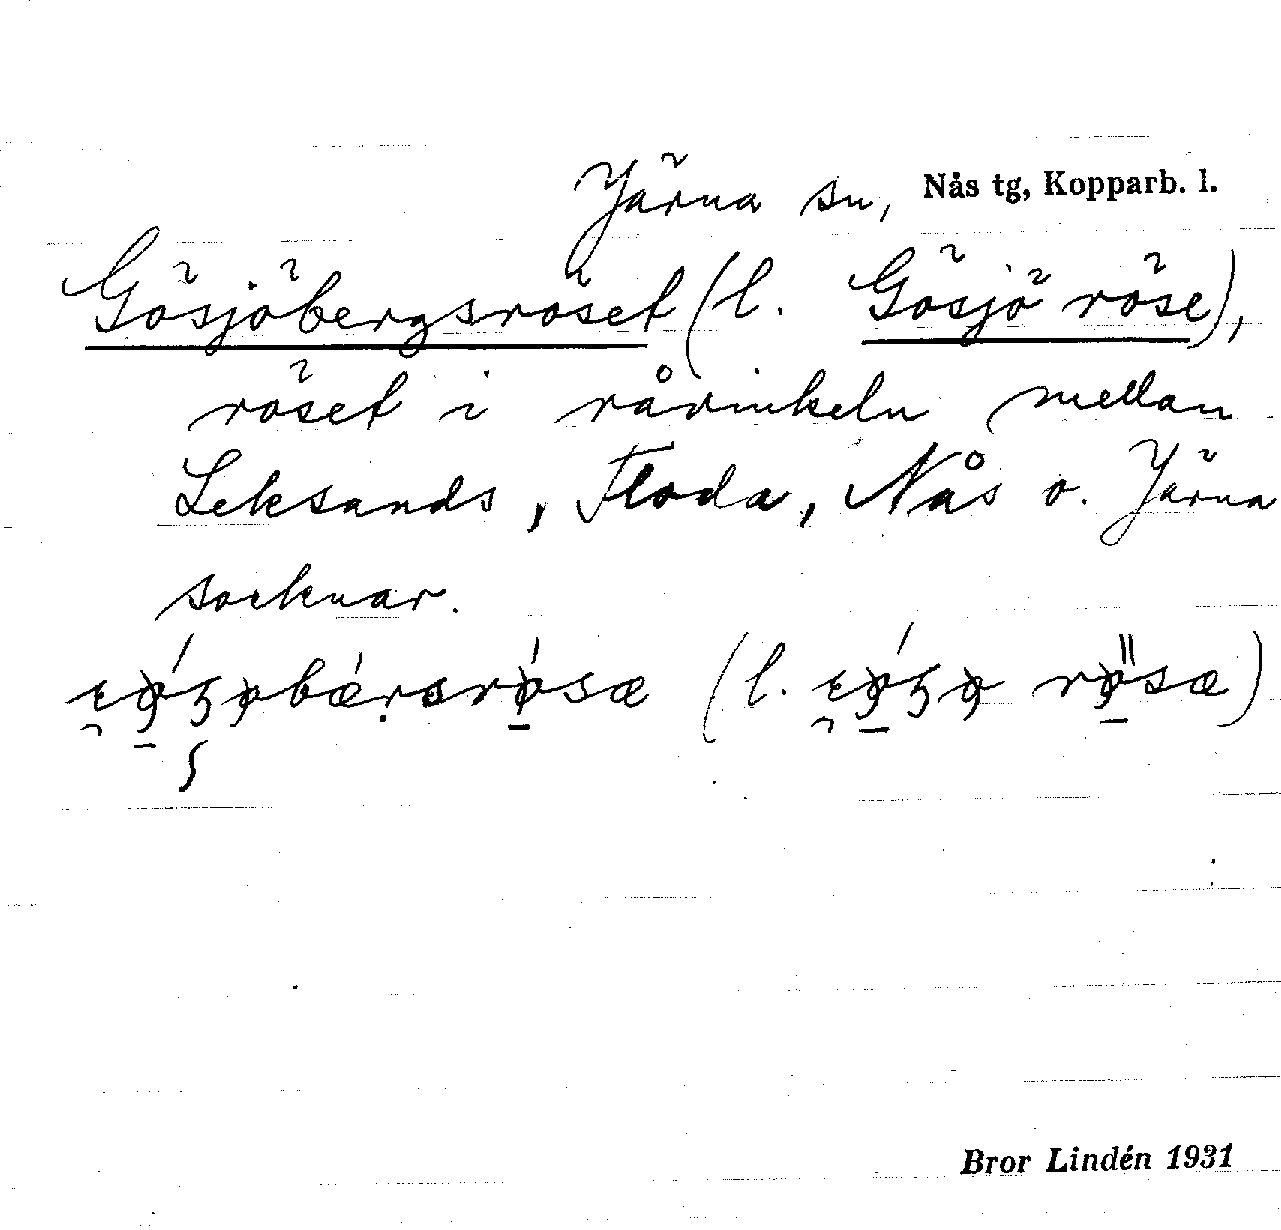 Järna sn, Nås tg, Kopparb. l.
Gösjöbergsröset (l. Gösjö röse),
röset i råvinkeln mellan
Leksands, Floda, Nås o. Järna
socknar.
(l.
Bror Lindén 1931